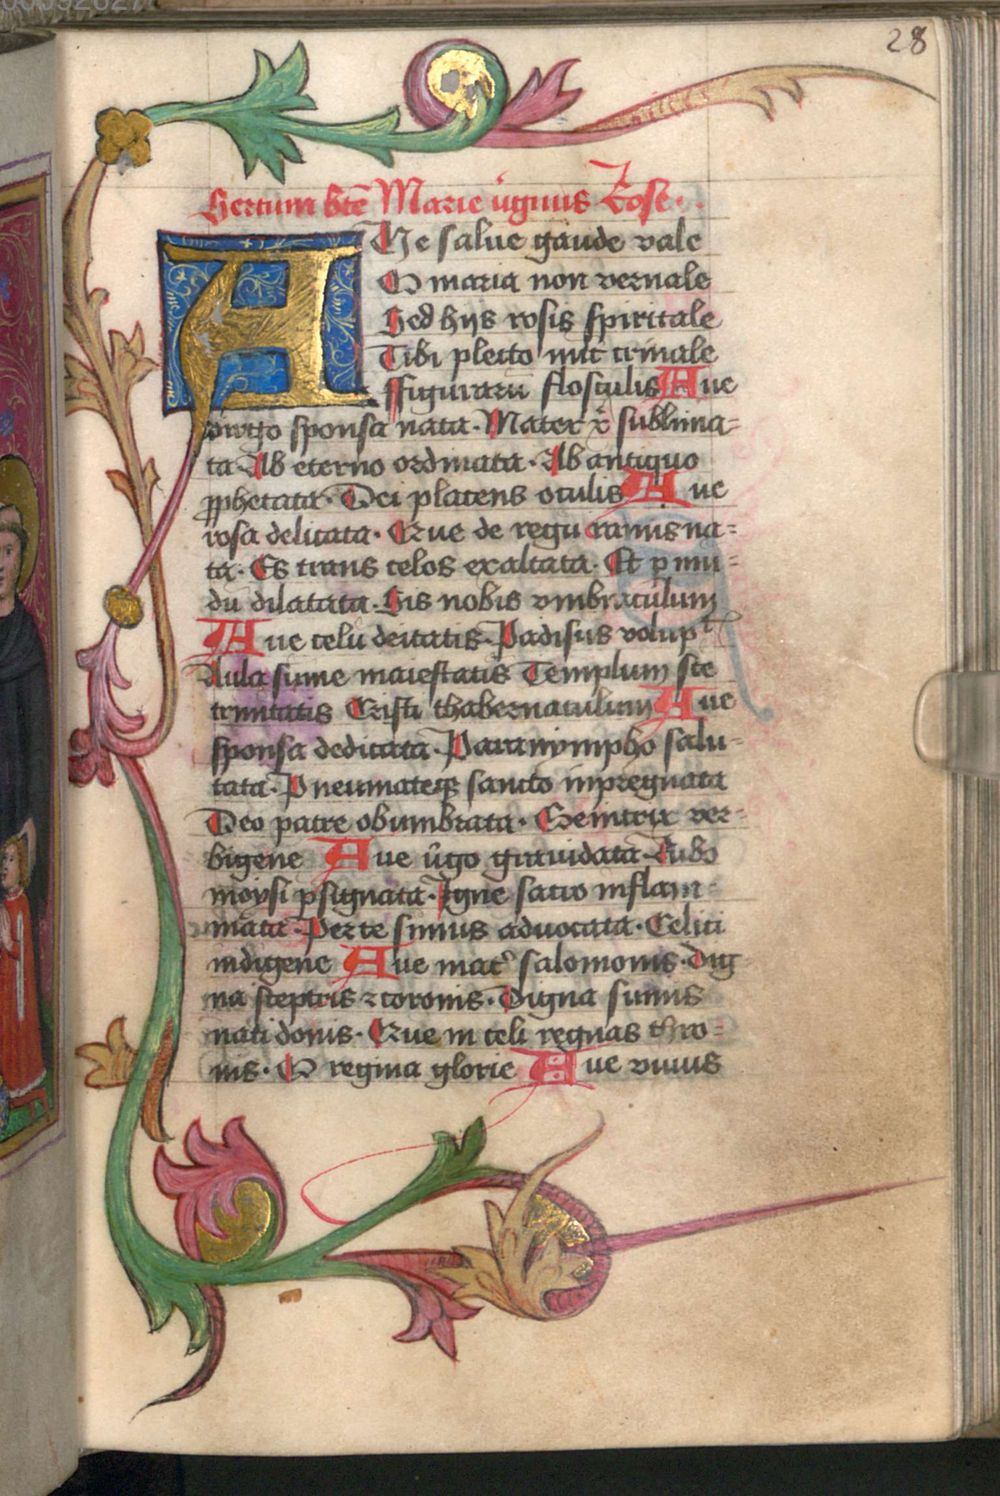 28
Sertum bte Marie v̓ginis Rose.
AVe salue gaude vale
O maria non vernale
Sed hijs rosis spiritale
Tibi plecto nūc crinale
ffiguraru flosculis Aue
virgo sponsa nata. Mater x̄ sublima=
ta Ab eterno ordinata. Ab antiquo
ꝓphetata. Dei placens oculis Aue
rosa delicata. Que de regū ramis na=
ta. Es trans celos exaltata. Et p mū=
dū dilatata. Sis nobis vmbraculum
Aue celū deitatis. Padisus volup̄t
Aula sūme maiestatis Templum sce
trinitatis Cristi thabernaculum Aue
sponsa dedicata. Paranympho salu=
tata. Pneumateqꝫ sancto inpregnata
Deo patre obumbrata. Genitrix ver=
bigene Aue v̓go grauidata. Rubo
moysi p̄signata. Igne sacro inflam=
mata. Per te simus aduocata. Celici
indigene Aue mat̓ salomonis. Dig
na sceptris ⁊ coronis. Digna sumis
nati donis. Que in celi regnas thro=
nis. O regina glorie Aue viuus